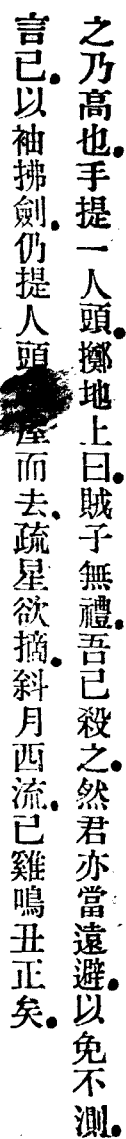 之乃高也。手提一人頭。擲地上曰。賊子無禮。吾已殺之。然君亦當遠避。以免不測。
言已。以袖拂劍。仍提人頭屋而去、疏星欲摘。斜月西流。已雞鳴丑正矣。